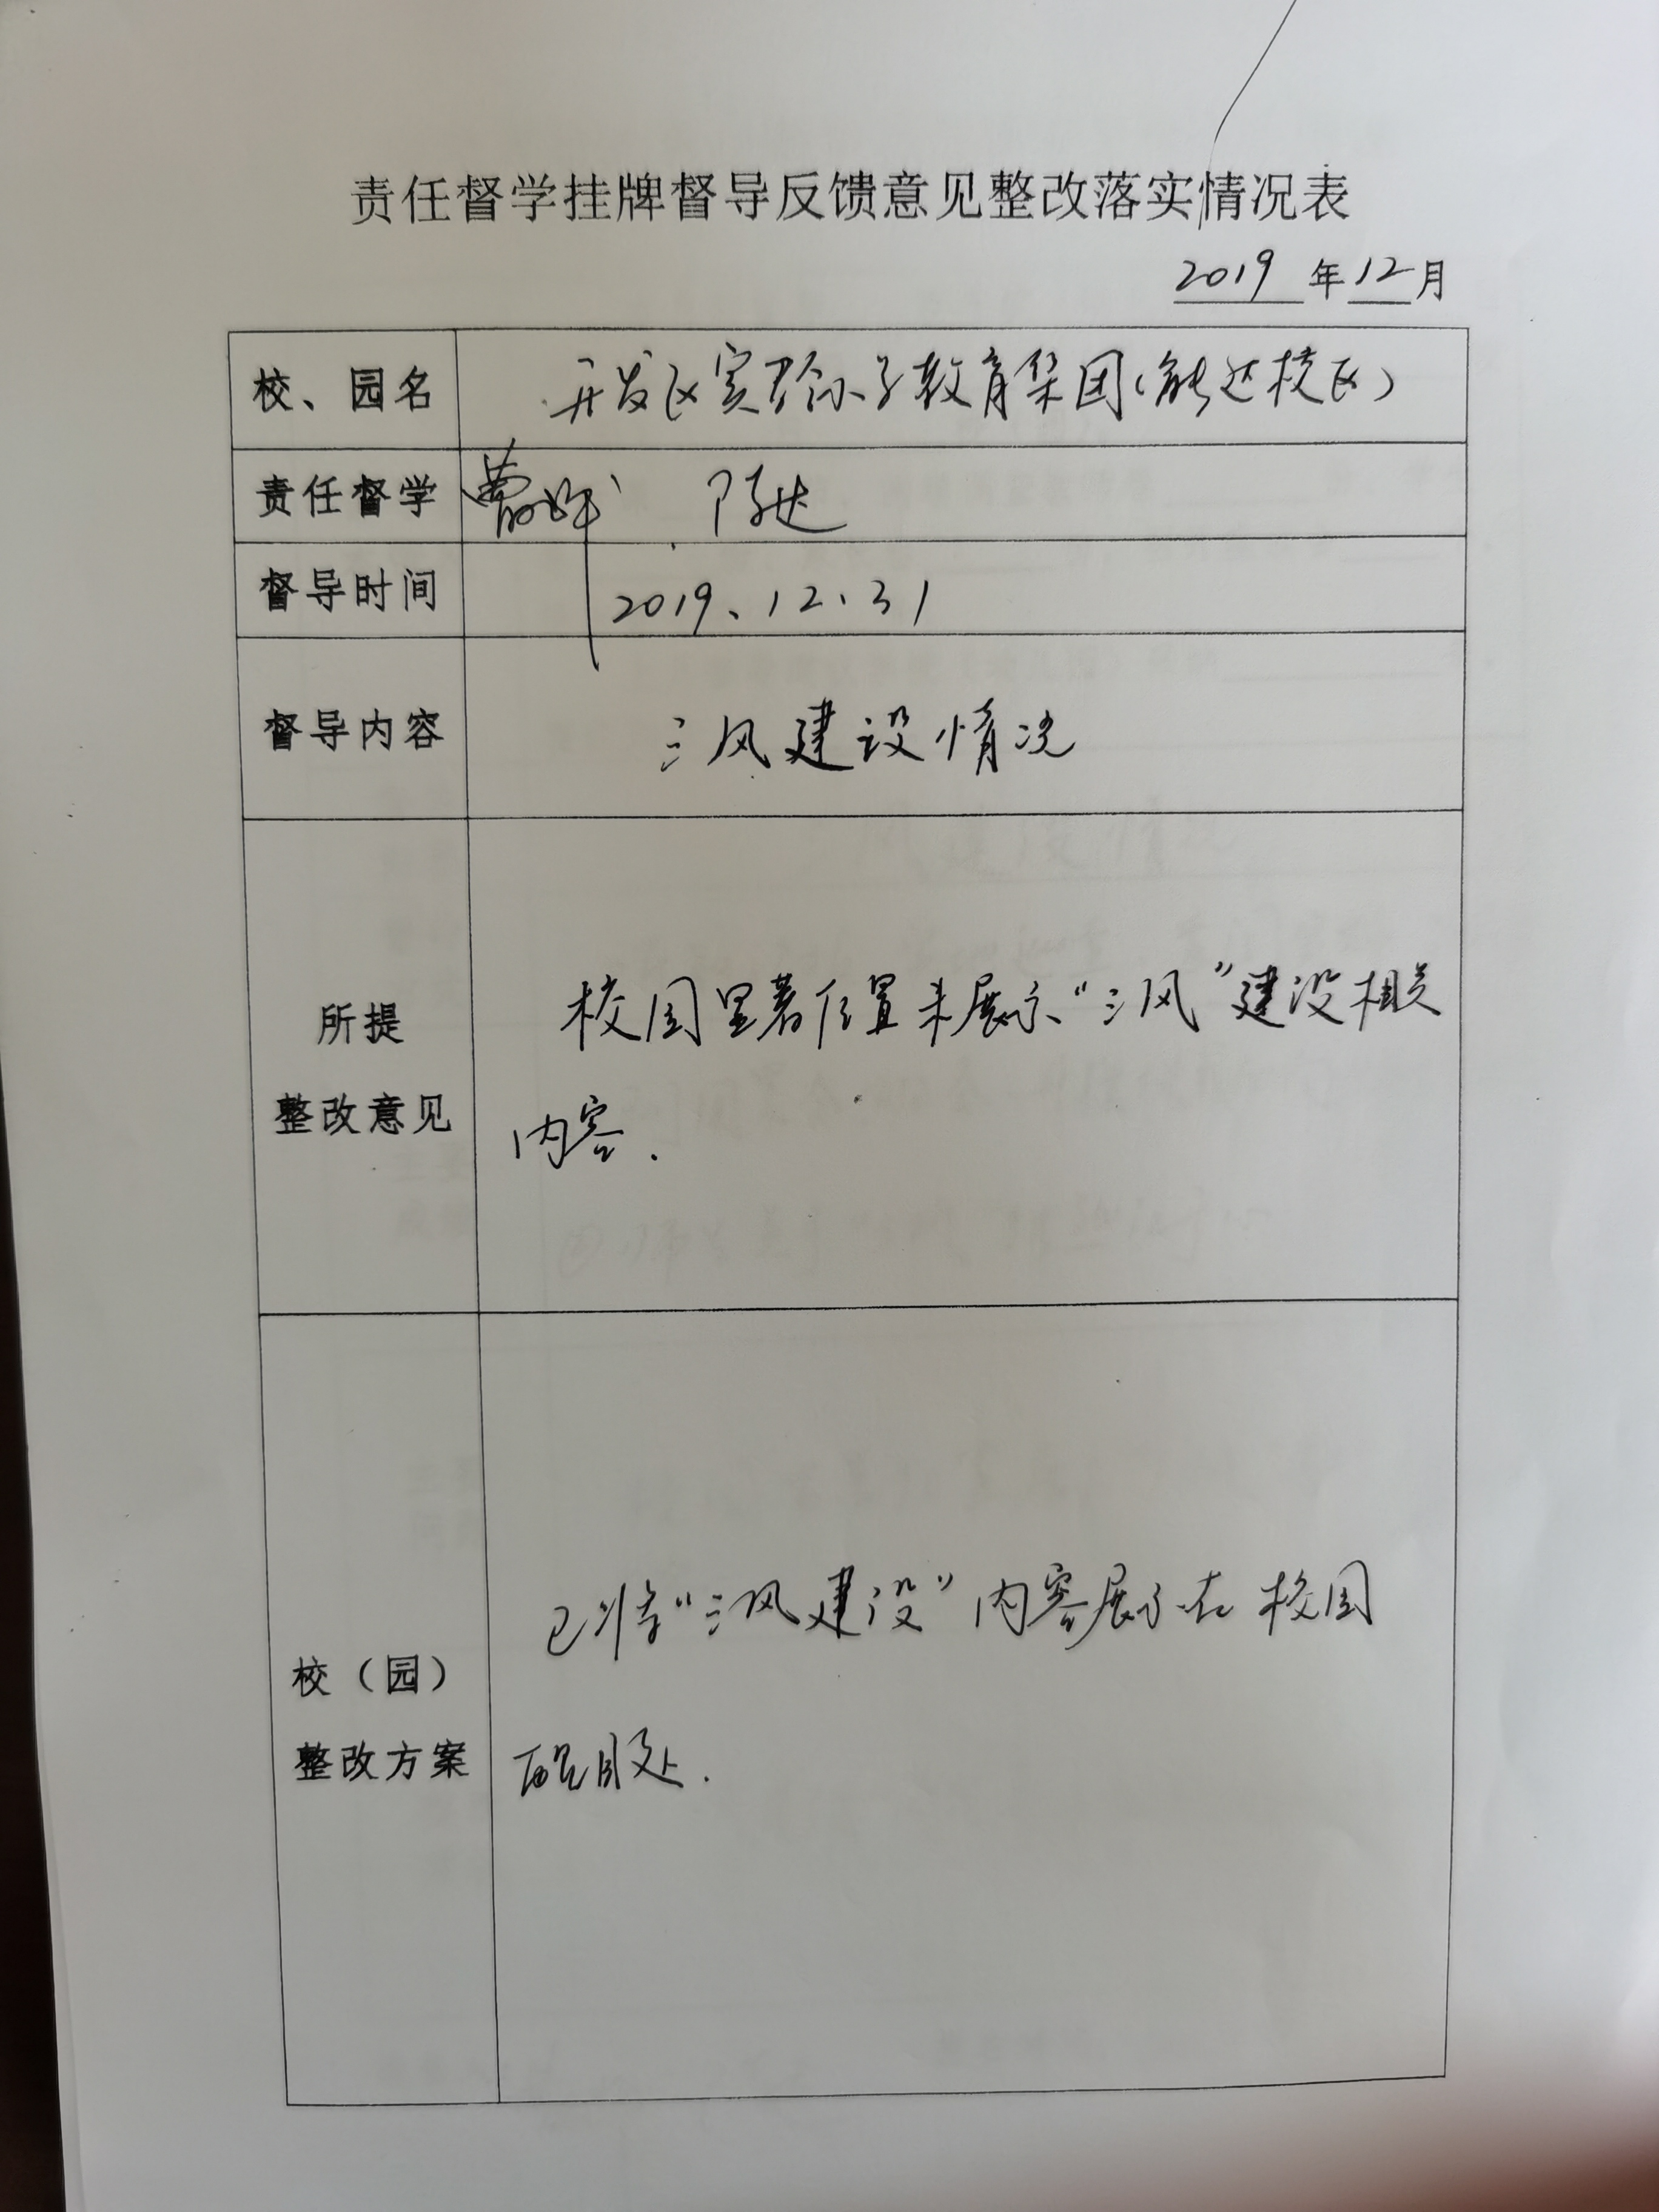 责任督学挂牌督导反馈意见整改落实情况表
2019 年 12 月
校、园名 开发区实验小学教育集团(能达校区)
责任督学 曹 陈达
督导时间 2019、12、31
督导内容 三风建设情况
校园显著位置未展示“三风”建设相关
所提
整改意见 内容.
已将“三风建设”内容展示在校园
校（园）
整改方案 醒目处.